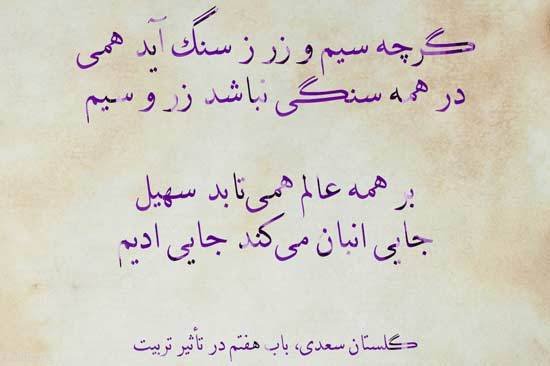 گرچه سیم و زر ز سنگ آید همی
در همه سنگی نباشد زر و سیم
بر همه عالم همی‌تابد سهیل
جایی انبان می‌کند جایی ادیم
گلستان سعدی، باب هفتم در تأثیر تربیت